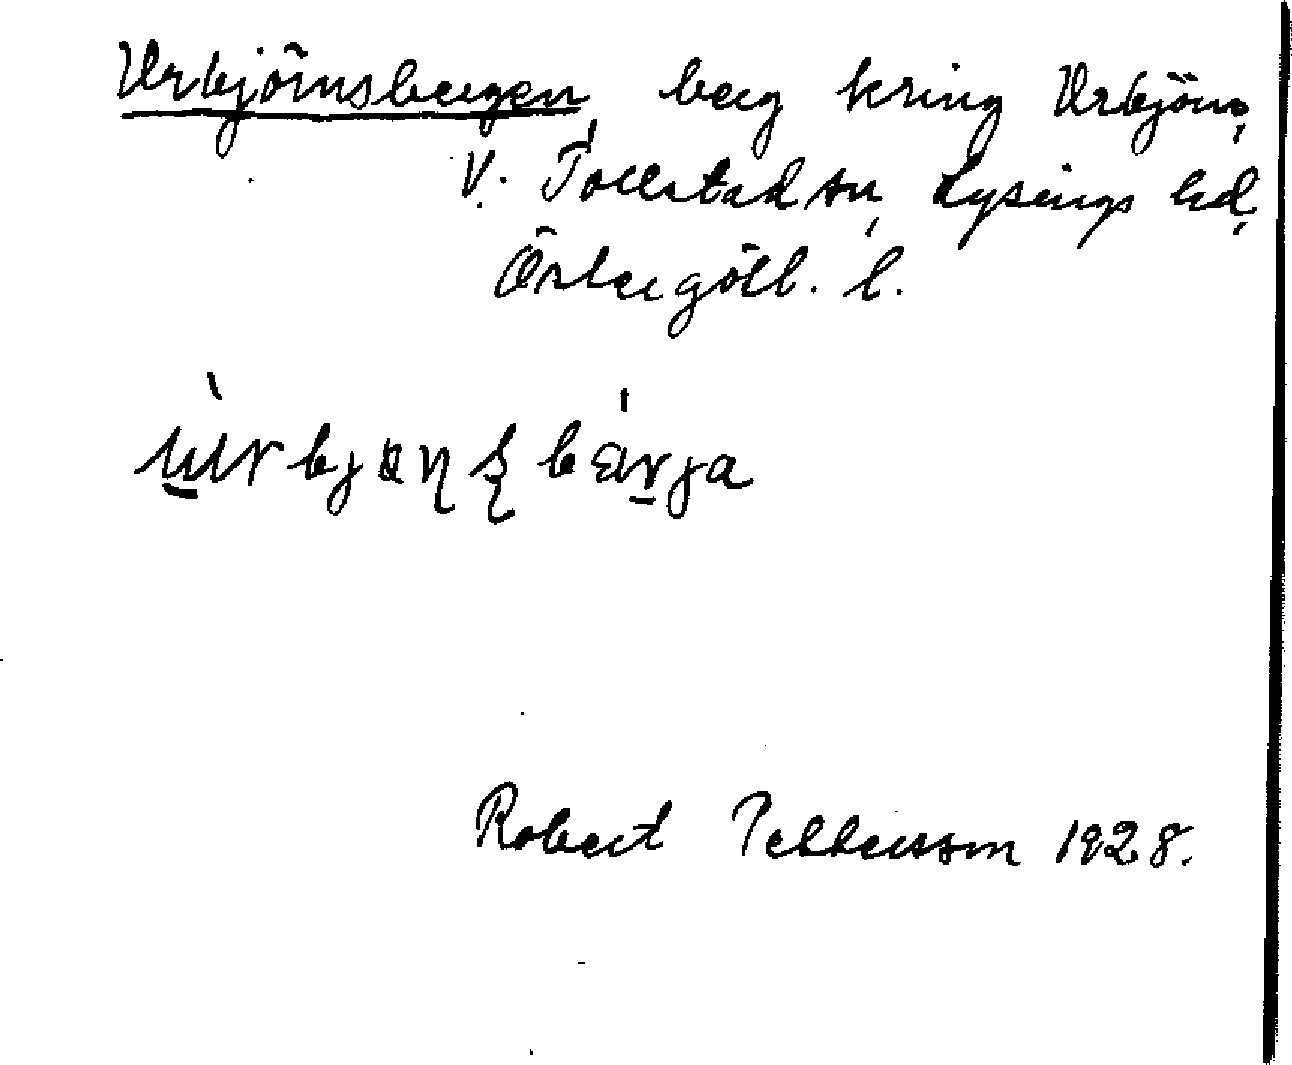 Urbjörnsbergen, berg kring Urbjörn,
V. Tollstad sn, Lysings hd,
Östergötl. l.
Robert Pettersson 1928.